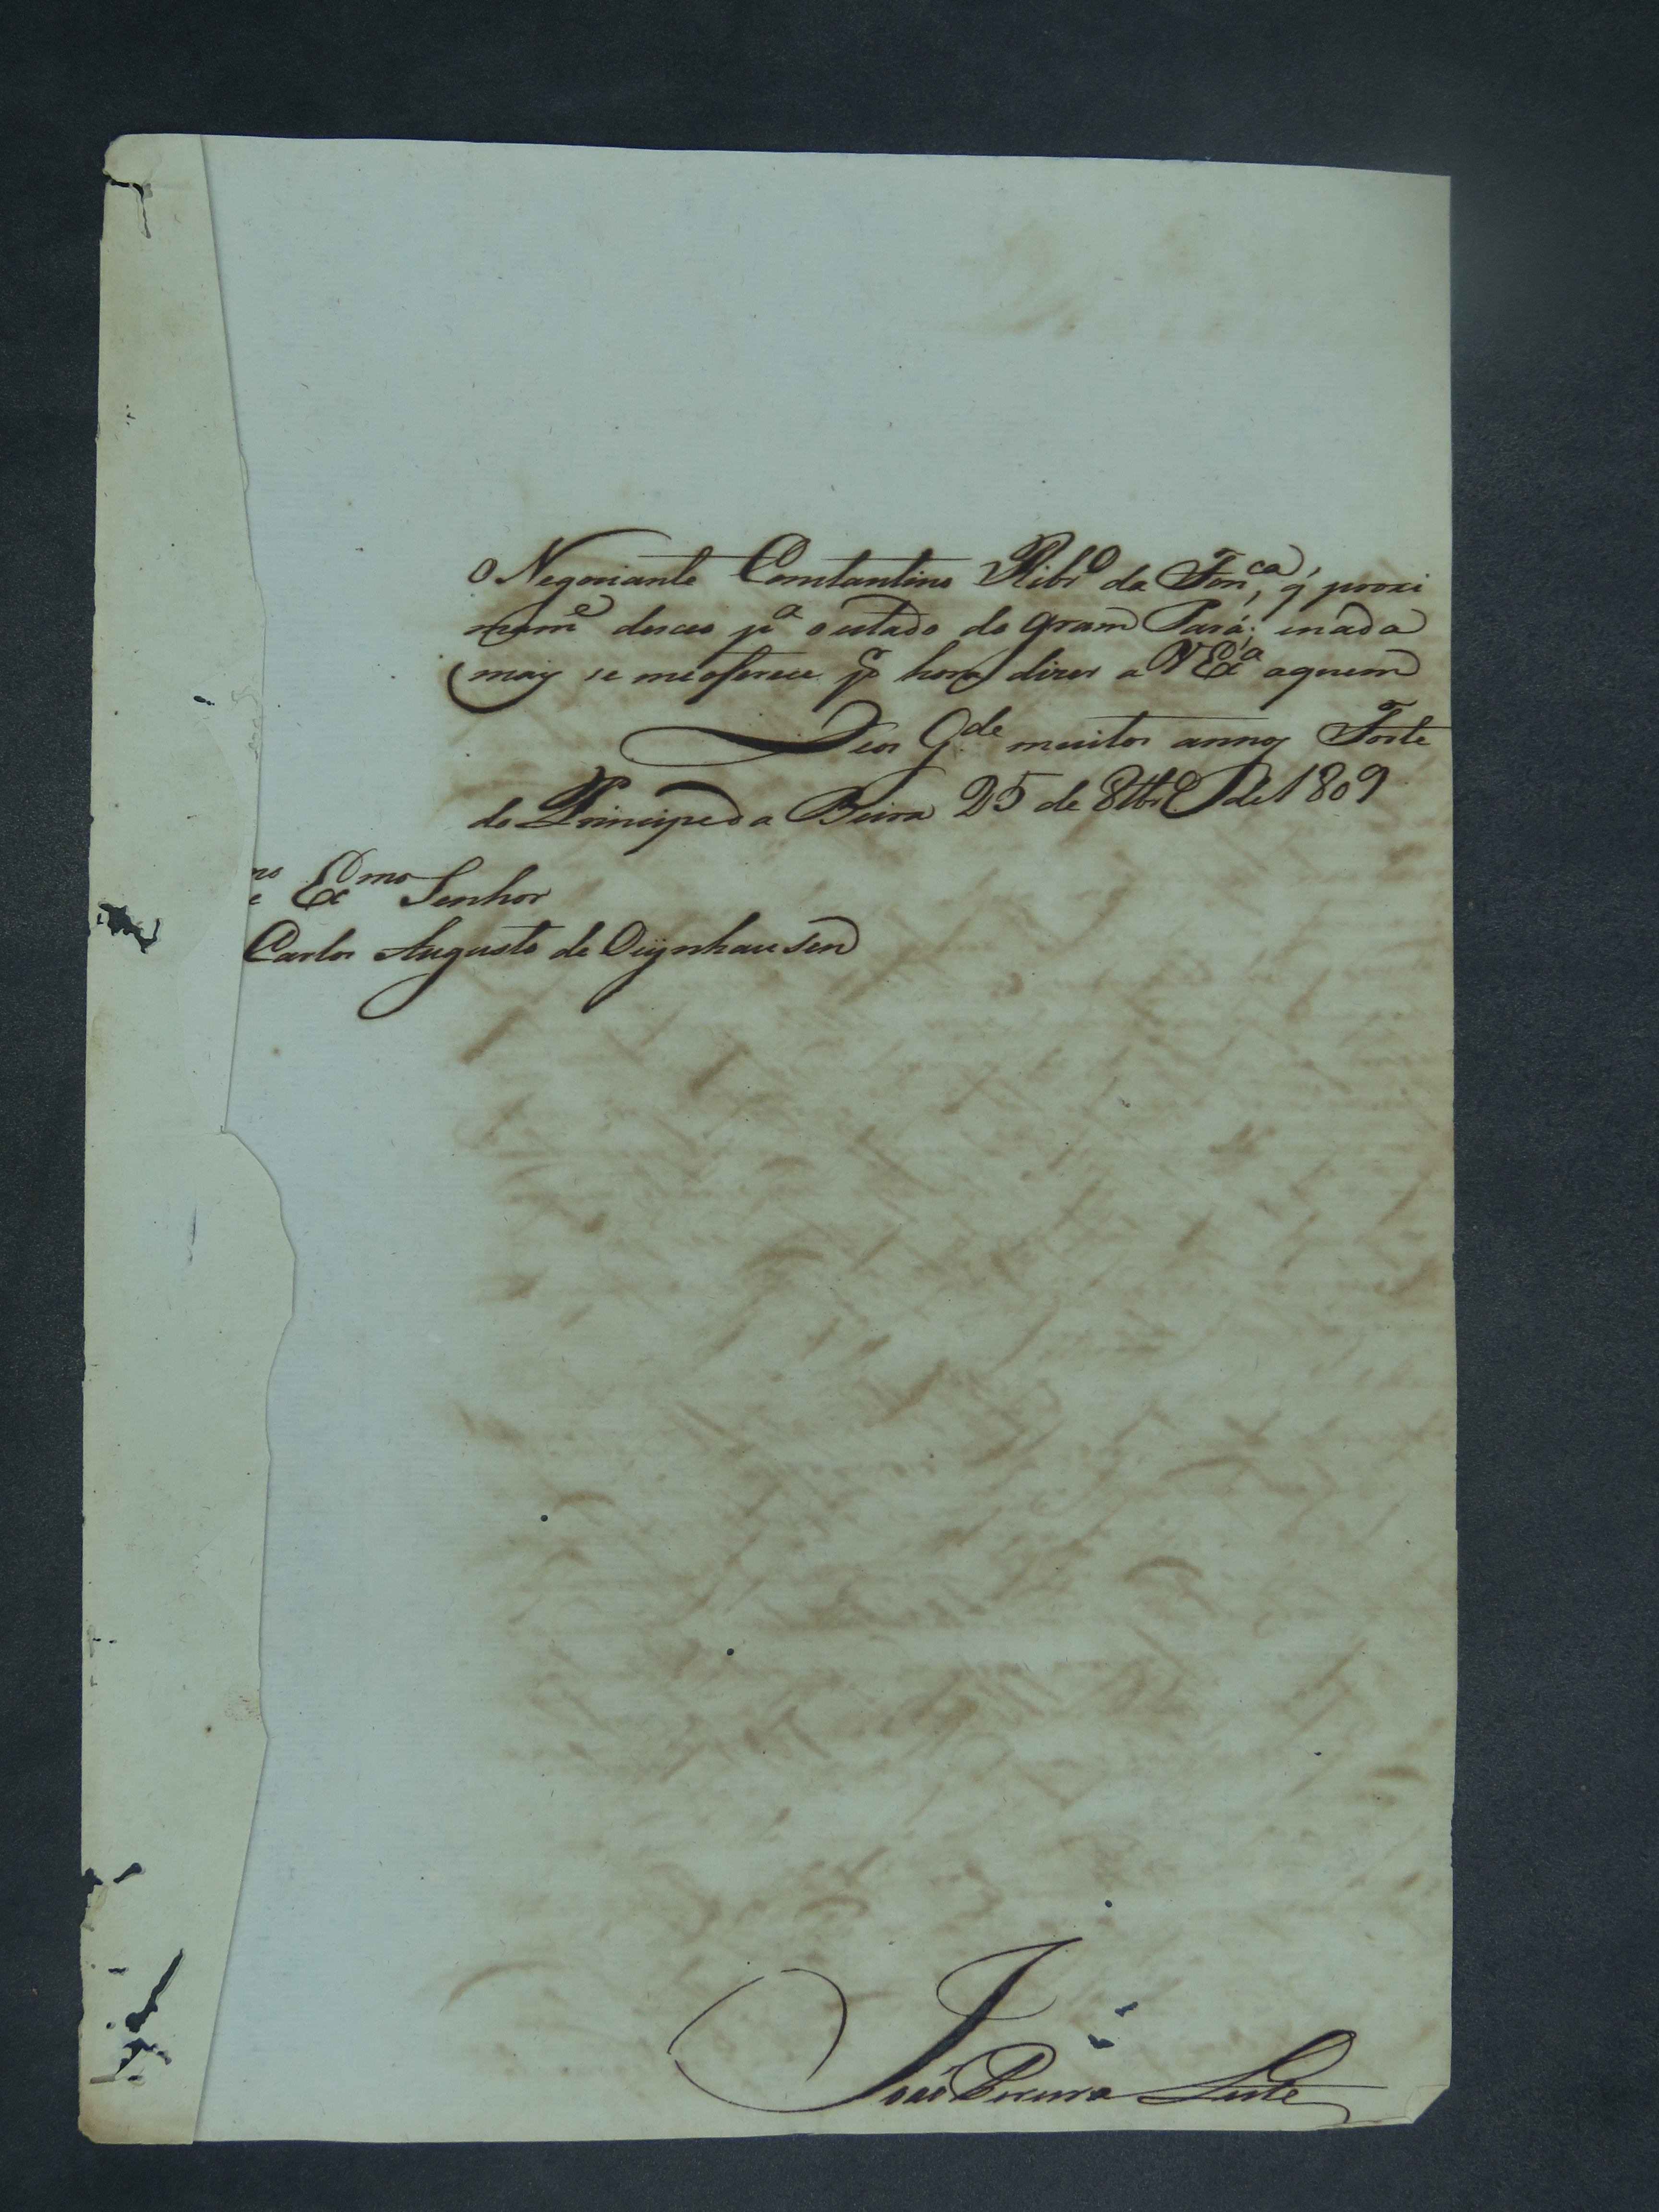 o Negociante Constantino Ribr.o da Fon.ca, q̃ proxi
mam.e desceo p.a o estado do Gram Pará; e nada
mais se me oferece p.r hora dizer a V Ex.a aquem
Deos G.de muitos annos Forte
do Principe da Beira 25 de 8tbr.o de 1809
mo e Ex.mo Senhor
Carlos Augusto de Oÿnhausen
João Pereira Leite